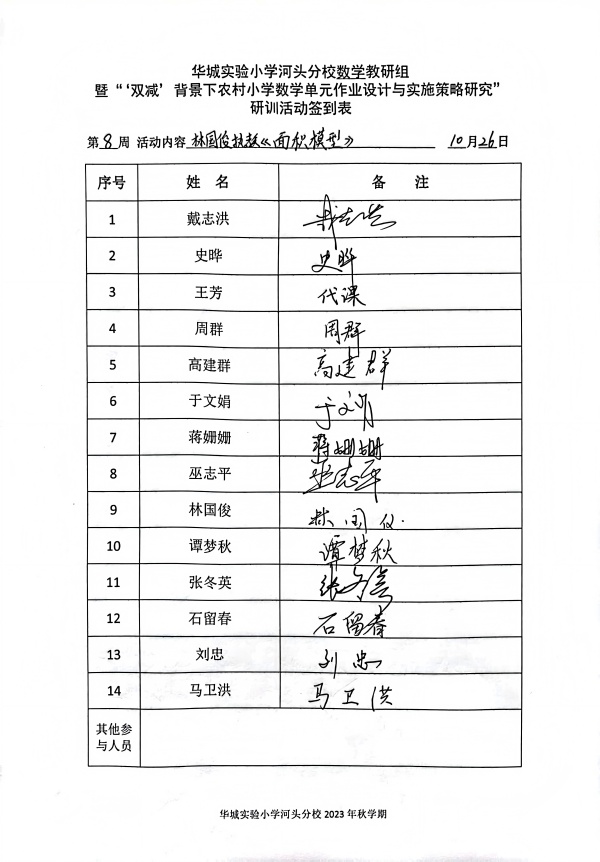 华城实验小学河头分校数学教研组
暨“‘双减’背景下农村小学数学单元作业设计与实施策略研究”
研训活动签到表
第8周 活动内容 林国俊执教《面积模型》 10月26日
序号 姓 名 备 注
1 戴志洪 戴志洪
2 史晔 史晔
3 王芳 代课
4 周群 周群
5 高建群 高建群
6 于文娟 于文娟
7 蒋姗姗 蒋姗姗
8 巫志平 巫志平
9 林国俊 林国仪
10 谭梦秋 谭梦秋
11 张冬英 张冬英
12 石留春 石留春
13 刘忠 刘忠
14 马卫洪 马卫洪
其他参
与人员
华城实验小学河头分校 2023 年秋学期